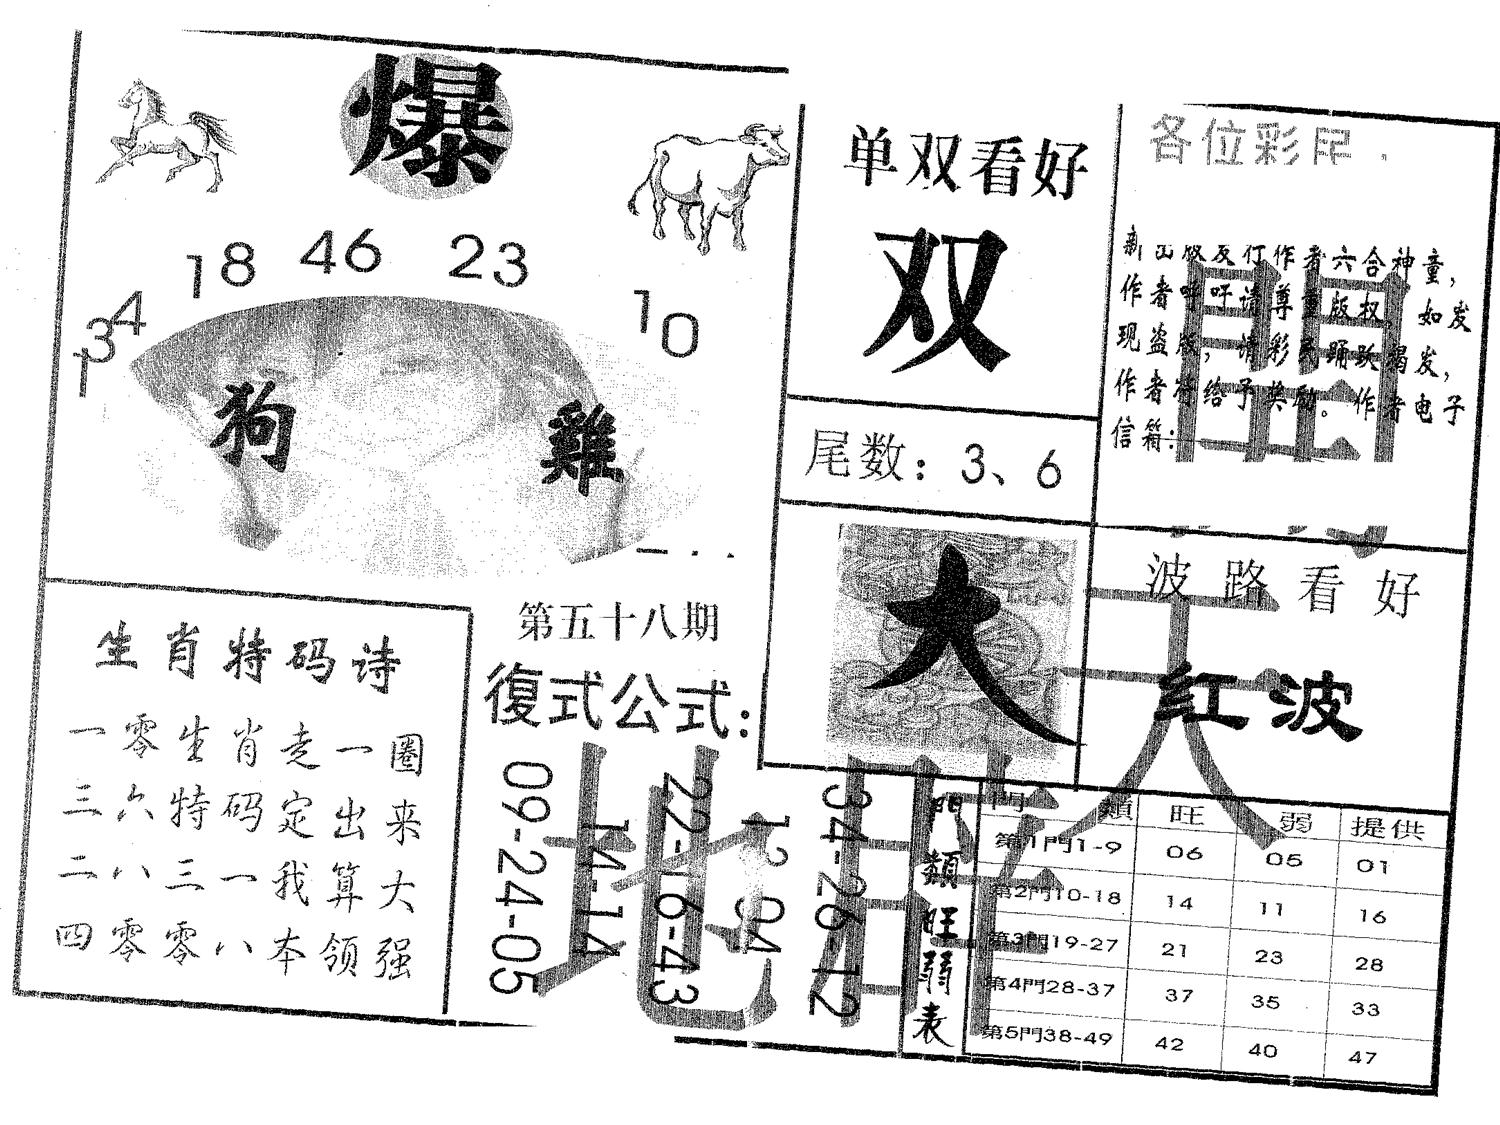 爆
18 46 23
10
34
1
狗 雞
单双看好
双
尾数：3、6
大
各位彩民
新出版发行作者六合神童，
作者呼吁请尊重版权，如发
现盗版，请彩民踊跃揭发，
作者将给予奖励。作者电子
信箱：
波路看好
红波
生肖特码诗
一零生肖走一圈
三六特码定出来
二八三一我算大
四零零八本领强
第五十八期
復式公式：
09-24-05
14-14
22-16-43
12 04
34-26-12
門類旺弱表
門類 旺 弱 提供
第1門1-9 06 05 01
第2門10-18 14 11 16
第3門19-27 21 23 28
第4門28-37 37 35 33
第5門38-49 42 40 47